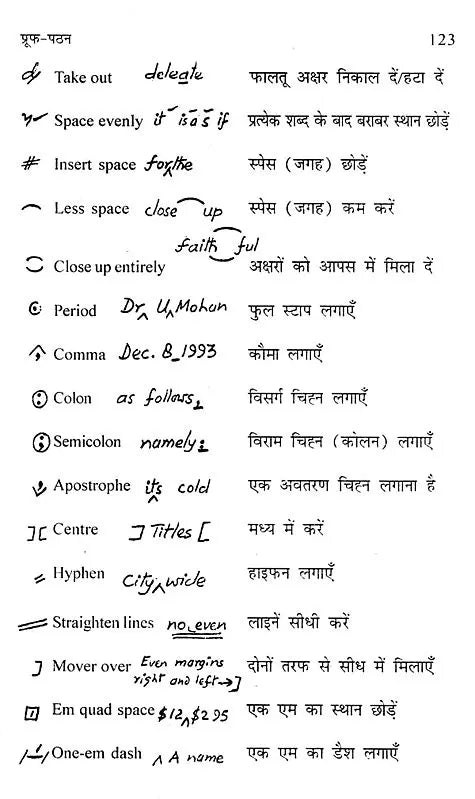 प्रूफ-पठन 123
Take out delegate फालतू अक्षर निकाल दें/हटा दें
Space evenly it is as if प्रत्येक शब्द के बाद बराबर स्थान छोड़ें
# Insert space for the स्पेस (जगह) छोड़ें
Less space close up स्पेस (जगह) कम करें
faith ful
Close up entirely अक्षरों को आपस में मिला दें
Period Dr U Mohan फुल स्टाप लगाएँ
Comma Dec. 8 1993 कौमा लगाएँ
Colon as follows विसर्ग चिह्न लगाएँ
Semicolon namely: विराम चिह्न (कोलन) लगाएँ
Apostrophe its cold एक अवतरण चिह्न लगाना है
][ Centre ] Titles [ मध्य में करें
Hyphen City wide हाइफन लगाएँ
Straighten lines no even लाइनें सीधी करें
] Mover over Even margins दोनों तरफ से सीध में मिलाएँ
right and left→]
Em quad space $12 $295 एक एम का स्थान छोड़ें
One-em dash A name एक एम का डैश लगाएँ